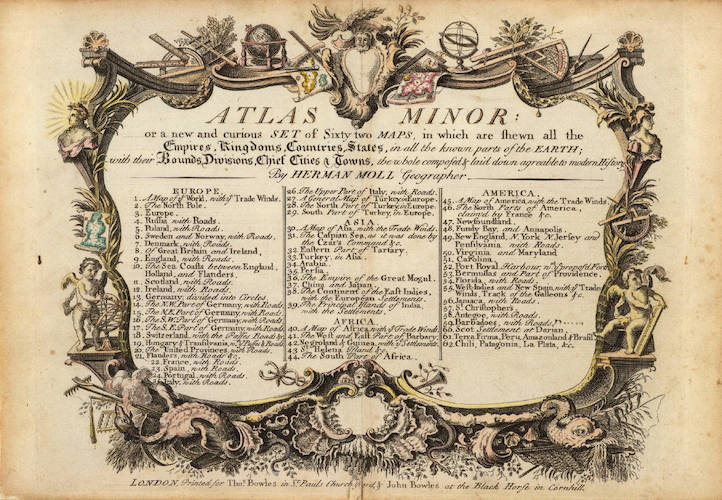 ATLAS MINOR:
or a new and curious SET of Sixty two MAPS, in which are shewn all the
Empires, Kingdoms, Countries, States, in all the known parts of the EARTH;
with their Bounds, Divisions, Chief Cities & Towns, the whole composed & laid down agreable to modern History
By HERMAN MOLL Geographer.
EUROPE.
1. A Map of ye World, with ye Trade Winds.
2. The North Pole.
3. Europe.
4. Russia with Roads.
5. Poland, with Roads.
6. Sweden and Norway, with Roads.
7. Denmark, with Roads.
8. Of Great Britain and Ireland,
9. England, with Roads.
10. The Sea Coasts between England,
Holland, and Flanders,
11. Scotland, with Roads.
12. Ireland, with Roads.
13. Germany, divided into Circles
14. The N.W. Part of Germany, with Roads
15. The N.E. Part of Germany, with Roads
16. The S.W. Part of Germany, with Roads
17. The S.E. Part of Germany, with Roads
18. Switzerland, with the Passes Roads &c
19. Hungary & Transilvania, with Roads
20. The United Provinces, with Roads.
21. Flanders, with Roads &c.
22. France, with Roads.
23. Spain, with Roads.
24. Portugal, with Roads.
25. Italy, with Roads.
26. The Upper Part of Italy, with Roads.
27. A General Map of Turky in Europe.
28. The North Part of Turkey in Europe.
29. South Part of Turkey, in Europe.
ASIA.
30. A Map of Asia, with the Trade Winds.
31. The Caspian Sea, as it was done by
the Czar's Command &c.
32. Eastern Part of Tartary.
33. Turkey, in Asia.
34. Arabia.
35. Persia.
36. The Empire of the Great Mogul.
37. China and Japan.
38. The Continent of the East Indies,
with the European Settlements.
39. The Principal Islands of India,
with the Settlements.
AFRICA.
40. A Map of Africa, with ye Trade Winds
41. The West and East Part of Barbary.
42. Negroland & Guinea, with ye Settlements
43. St. Helena Island &c.
44. The South Part of Africa.
AMERICA.
45. A Map of America, with the Trade Winds.
46. The North Parts of America,
claim'd by France &c.
47. Newfoundland.
48. Fundy Bay, and Annapolis.
49. New England, N. York N. Jersey and
Pensilvania with Roads.
50. Virginia and Maryland
51. Carolina.
52. Port Royal Harbour, wth ye propos'd Fort
53. Bermudas and Part of Providence.
54. Florida, with Roads.
55. West Indies and New Spain, with ye Trade
Winds, Track of the Galleons &c.
56. Jamaica, with Roads.
57. St. Christophers.
58. Antegoe, with Roads.
59. Barbadoes, with Roads,
60. Scots Settlement or Darian.
61. Terra Firma, Peru, Amazonland & Brasil.
62. Chili, Patagonia, La Plata, &c.
LONDON, Printed for Thos. Bowles in St. Pauls Church Yard, & John Bowles at the Black Horse in Cornhill.